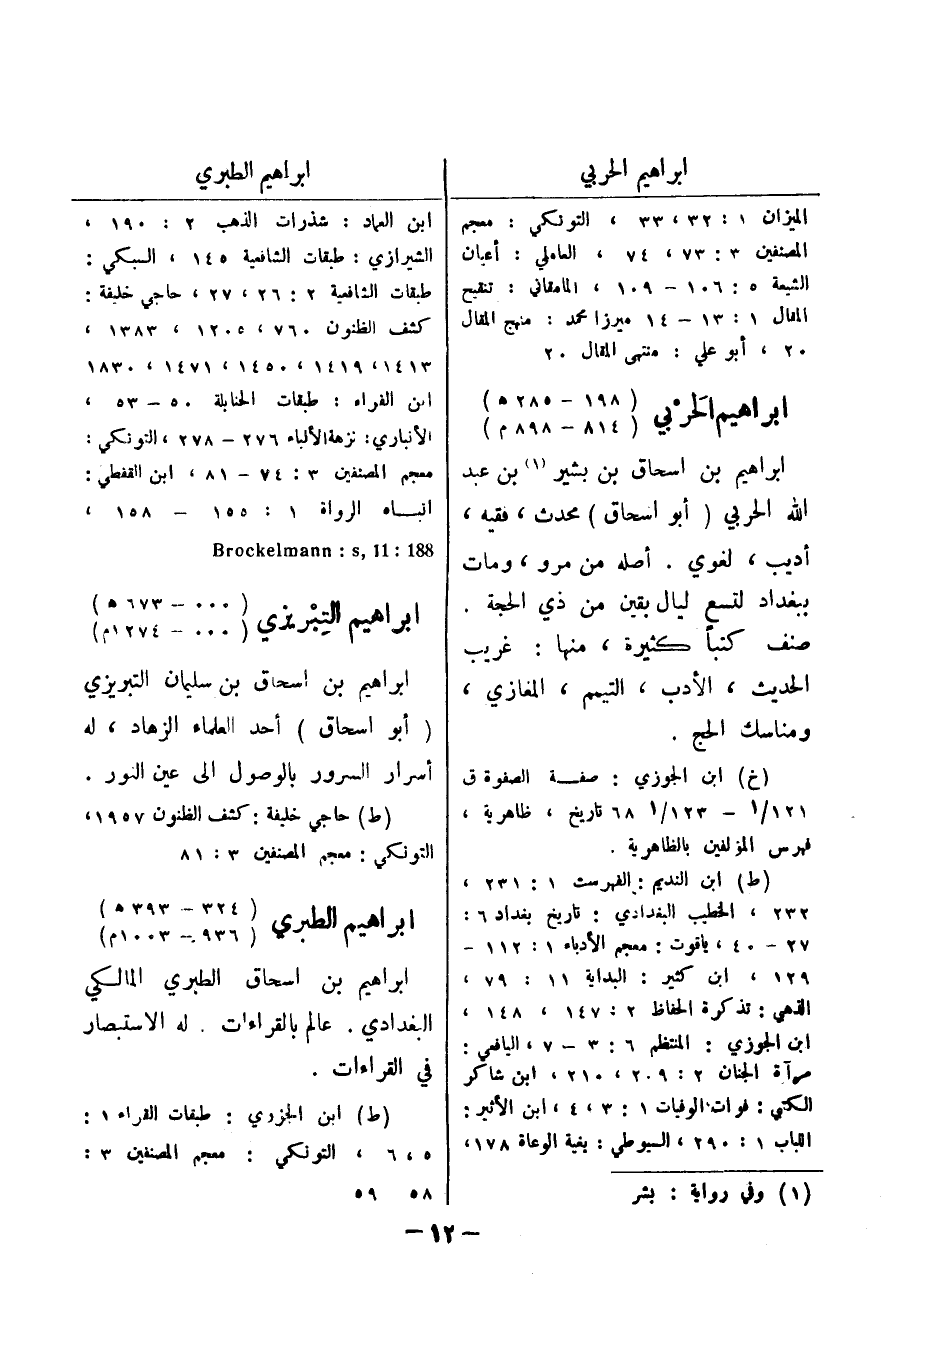 ابراهيم الحربي
الميزان ١ : ٣٢ ، ٣٣ ، التونكي : معجم
المصنفين ٣ : ٧٣ ، ٧٤ ، العاملي : أعيان
الشيعة ٥ : ١٠٦ – ١٠٩ ، المامقاني : تنقيح
المقال ١ : ١٣ – ١٤ ميرزا محمد : منهج المقال
٢٠ ، أبو علي : منتهى المقال ٢٠
ابراهيم الحَرْبي ( ١٩٨ – ٢٨٥ ه )
( ٨١٤ – ٨٩٨ م )
ابراهيم بن اسحاق بن بشير (١) بن عبد
الله الحربي ( أبو اسحاق ) محدث ، فقيه ،
أديب ، لغوي . أصله من مرو ، ومات
ببغداد لتسع ليال بقين من ذي الحجة .
صنف كتباً كثيرة ، منها : غريب
الحديث ، الأدب ، التيمم ، المغازي ،
ومناسك الحج .
(خ) ابن الجوزي : صفة الصفوة ق
١٢١/١ – ١٢٣/١ ٦٨ تاريخ ، ظاهرية ،
فهرس المؤلفين بالظاهرية .
(ط) ابن النديم : الفهرست ١ : ٢٣١ ،
٢٣٢ ، الخطيب البغدادي : تاريخ بغداد ٦ :
٢٧ – ٤٠ ، ياقوت : معجم الأدباء ١ : ١١٢ –
١٢٩ ، ابن كثير : البداية ١١ : ٧٩ ،
الذهبي : تذكرة الحفاظ ٢ : ١٤٧ ، ١٤٨ ،
ابن الجوزي : المنتظم ٦ : ٣ – ٧ ، اليافعي :
مرآة الجنان ٢ : ٢٠٩ ، ٢١٠ ، ابن شاكر
الكتبي : فوات الوفيات ١ : ٣ ، ٤ ، ابن الأثير :
اللباب ١ : ٢٩٠ ، السيوطي : بغية الوعاة ١٧٨ ،
(١) وفي رواية : بشر
ابراهيم الطبري
ابن العماد : شذرات الذهب ٢ : ١٩٠ ،
الشيرازي : طبقات الشافعية ١٤٥ ، السبكي :
طبقات الشافعية ٢ : ٢٦ ، ٢٧ ، حاجي خليفة :
كشف الظنون ٧٦٠ ، ١٢٠٥ ، ١٣٨٣ ،
١٤١٣ ، ١٤١٩ ، ١٤٥٠ ، ١٤٧١ ، ١٨٣٠
ابن الفراء : طبقات الحنابلة ٥٠ – ٥٣ ،
الأنباري : نزهة الألباء ٢٧٦ – ٢٧٨ ، التونكي :
معجم المصنفين ٣ : ٧٤ – ٨١ ، ابن القفطي :
انباه الرواة ١ : ١٥٥ – ١٥٨ ،
Brockelmann : s, 11 : 188
ابراهيم التِبْريزي ( ٠٠٠ – ٦٧٣ ه )
( ٠٠٠ – ١٢٧٤م )
ابراهيم بن اسحاق بن سليمان التبريزي
( أبو اسحاق ) أحد العلماء الزهاد ، له
أسرار السرور بالوصول الى عين النور .
(ط) حاجي خليفة : كشف الظنون ١٩٥٧ ،
التونكي : معجم المصنفين ٣ : ٨١
ابراهيم الطبري ( ٣٢٤ – ٣٩٣ ه )
( ٩٣٦ – ١٠٠٣م )
ابراهيم بن اسحاق الطبري المالكي
البغدادي . عالم بالقراءات . له الاستبصار
في القراءات .
(ط) ابن الجزري : طبقات القراء ١ :
٥ ، ٦ ، التونكي : معجم المصنفين ٣ :
٥٨ ٥٩
– ١٢ –